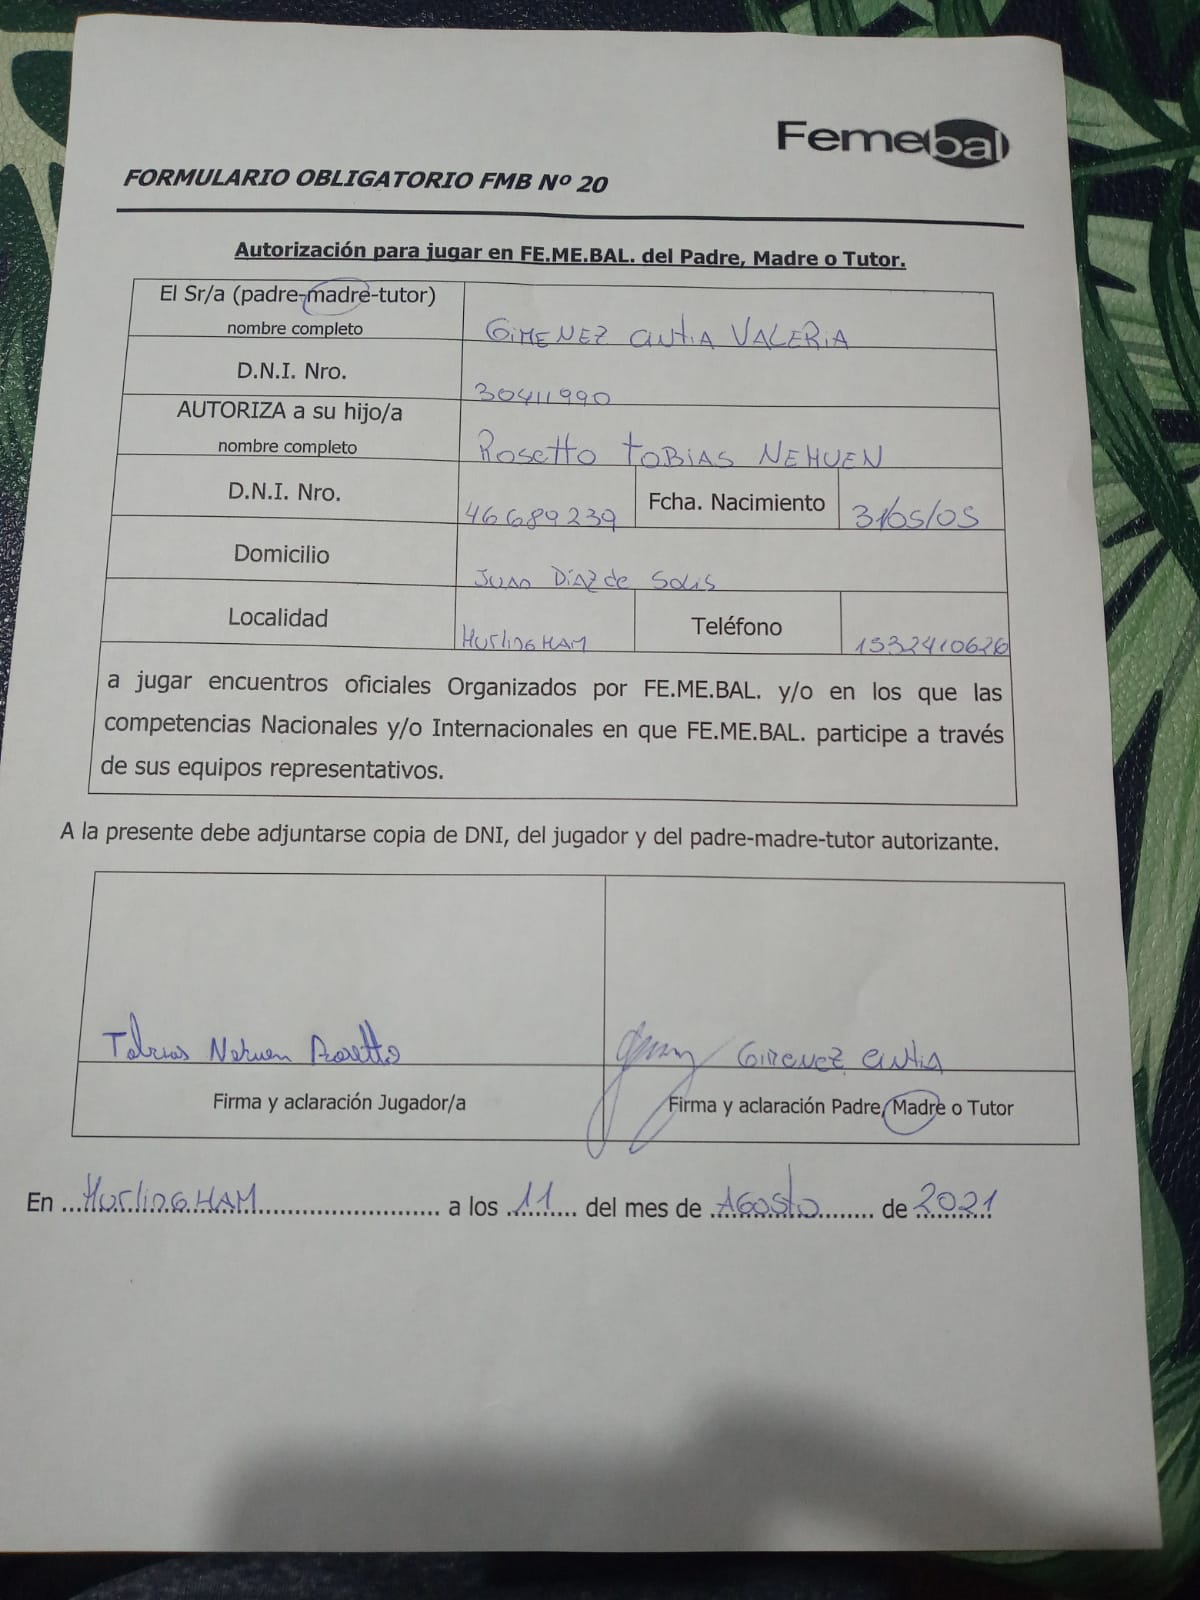 Femebal
FORMULARIO OBLIGATORIO FMB Nº 20
Autorización para jugar en FE.ME.BAL. del Padre, Madre o Tutor.
El Sr/a (padre-madre-tutor)
nombre completo
GIMENEZ CINTIA VALERIA
D.N.I. Nro.
30411990
AUTORIZA a su hijo/a
nombre completo
Rosetto TOBIAS NEHUEN
D.N.I. Nro.
46689239
Fcha. Nacimiento
31/05/05
Domicilio
Juan Díaz de Solis
Localidad
HurlingHAM
Teléfono
1532410626
a jugar encuentros oficiales Organizados por FE.ME.BAL. y/o en los que las
competencias Nacionales y/o Internacionales en que FE.ME.BAL. participe a través
de sus equipos representativos.
A la presente debe adjuntarse copia de DNI, del jugador y del padre-madre-tutor autorizante.
Tobias Nehuen Rosetto
GIMENEZ CINTIA
Firma y aclaración Jugador/a
Firma y aclaración Padre, Madre o Tutor
En ...HurlingHAM................................ a los ..11..... del mes de ..AGosto........ de 2021